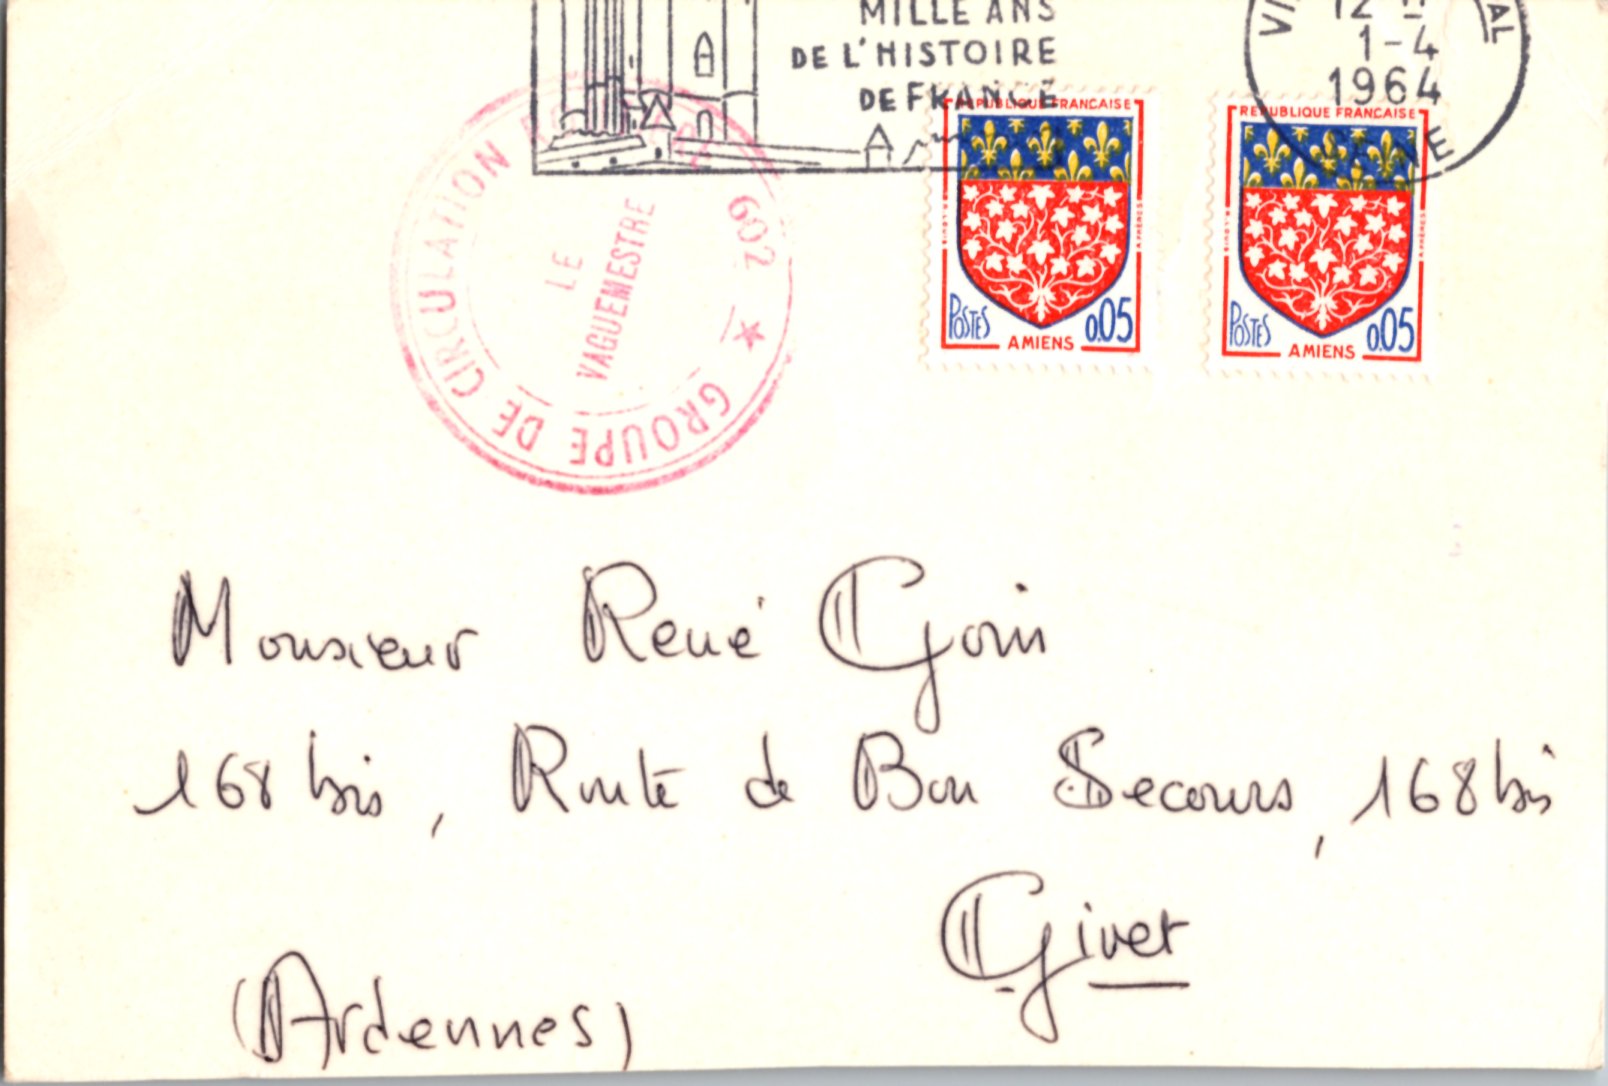 MILLE ANS
DE L'HISTOIRE
DE FRANCE
12
1-4
1964
REPUBLIQUE FRANCAISE
POSTES
0.05
AMIENS
REPUBLIQUE FRANCAISE
POSTES
0.05
AMIENS
GROUPE DE CIRCULATION 602
LE
VAGUEMESTRE
Monsieur René Goin
168 bis, Route de Bon Secours, 168 bis
Givet
(Ardennes)